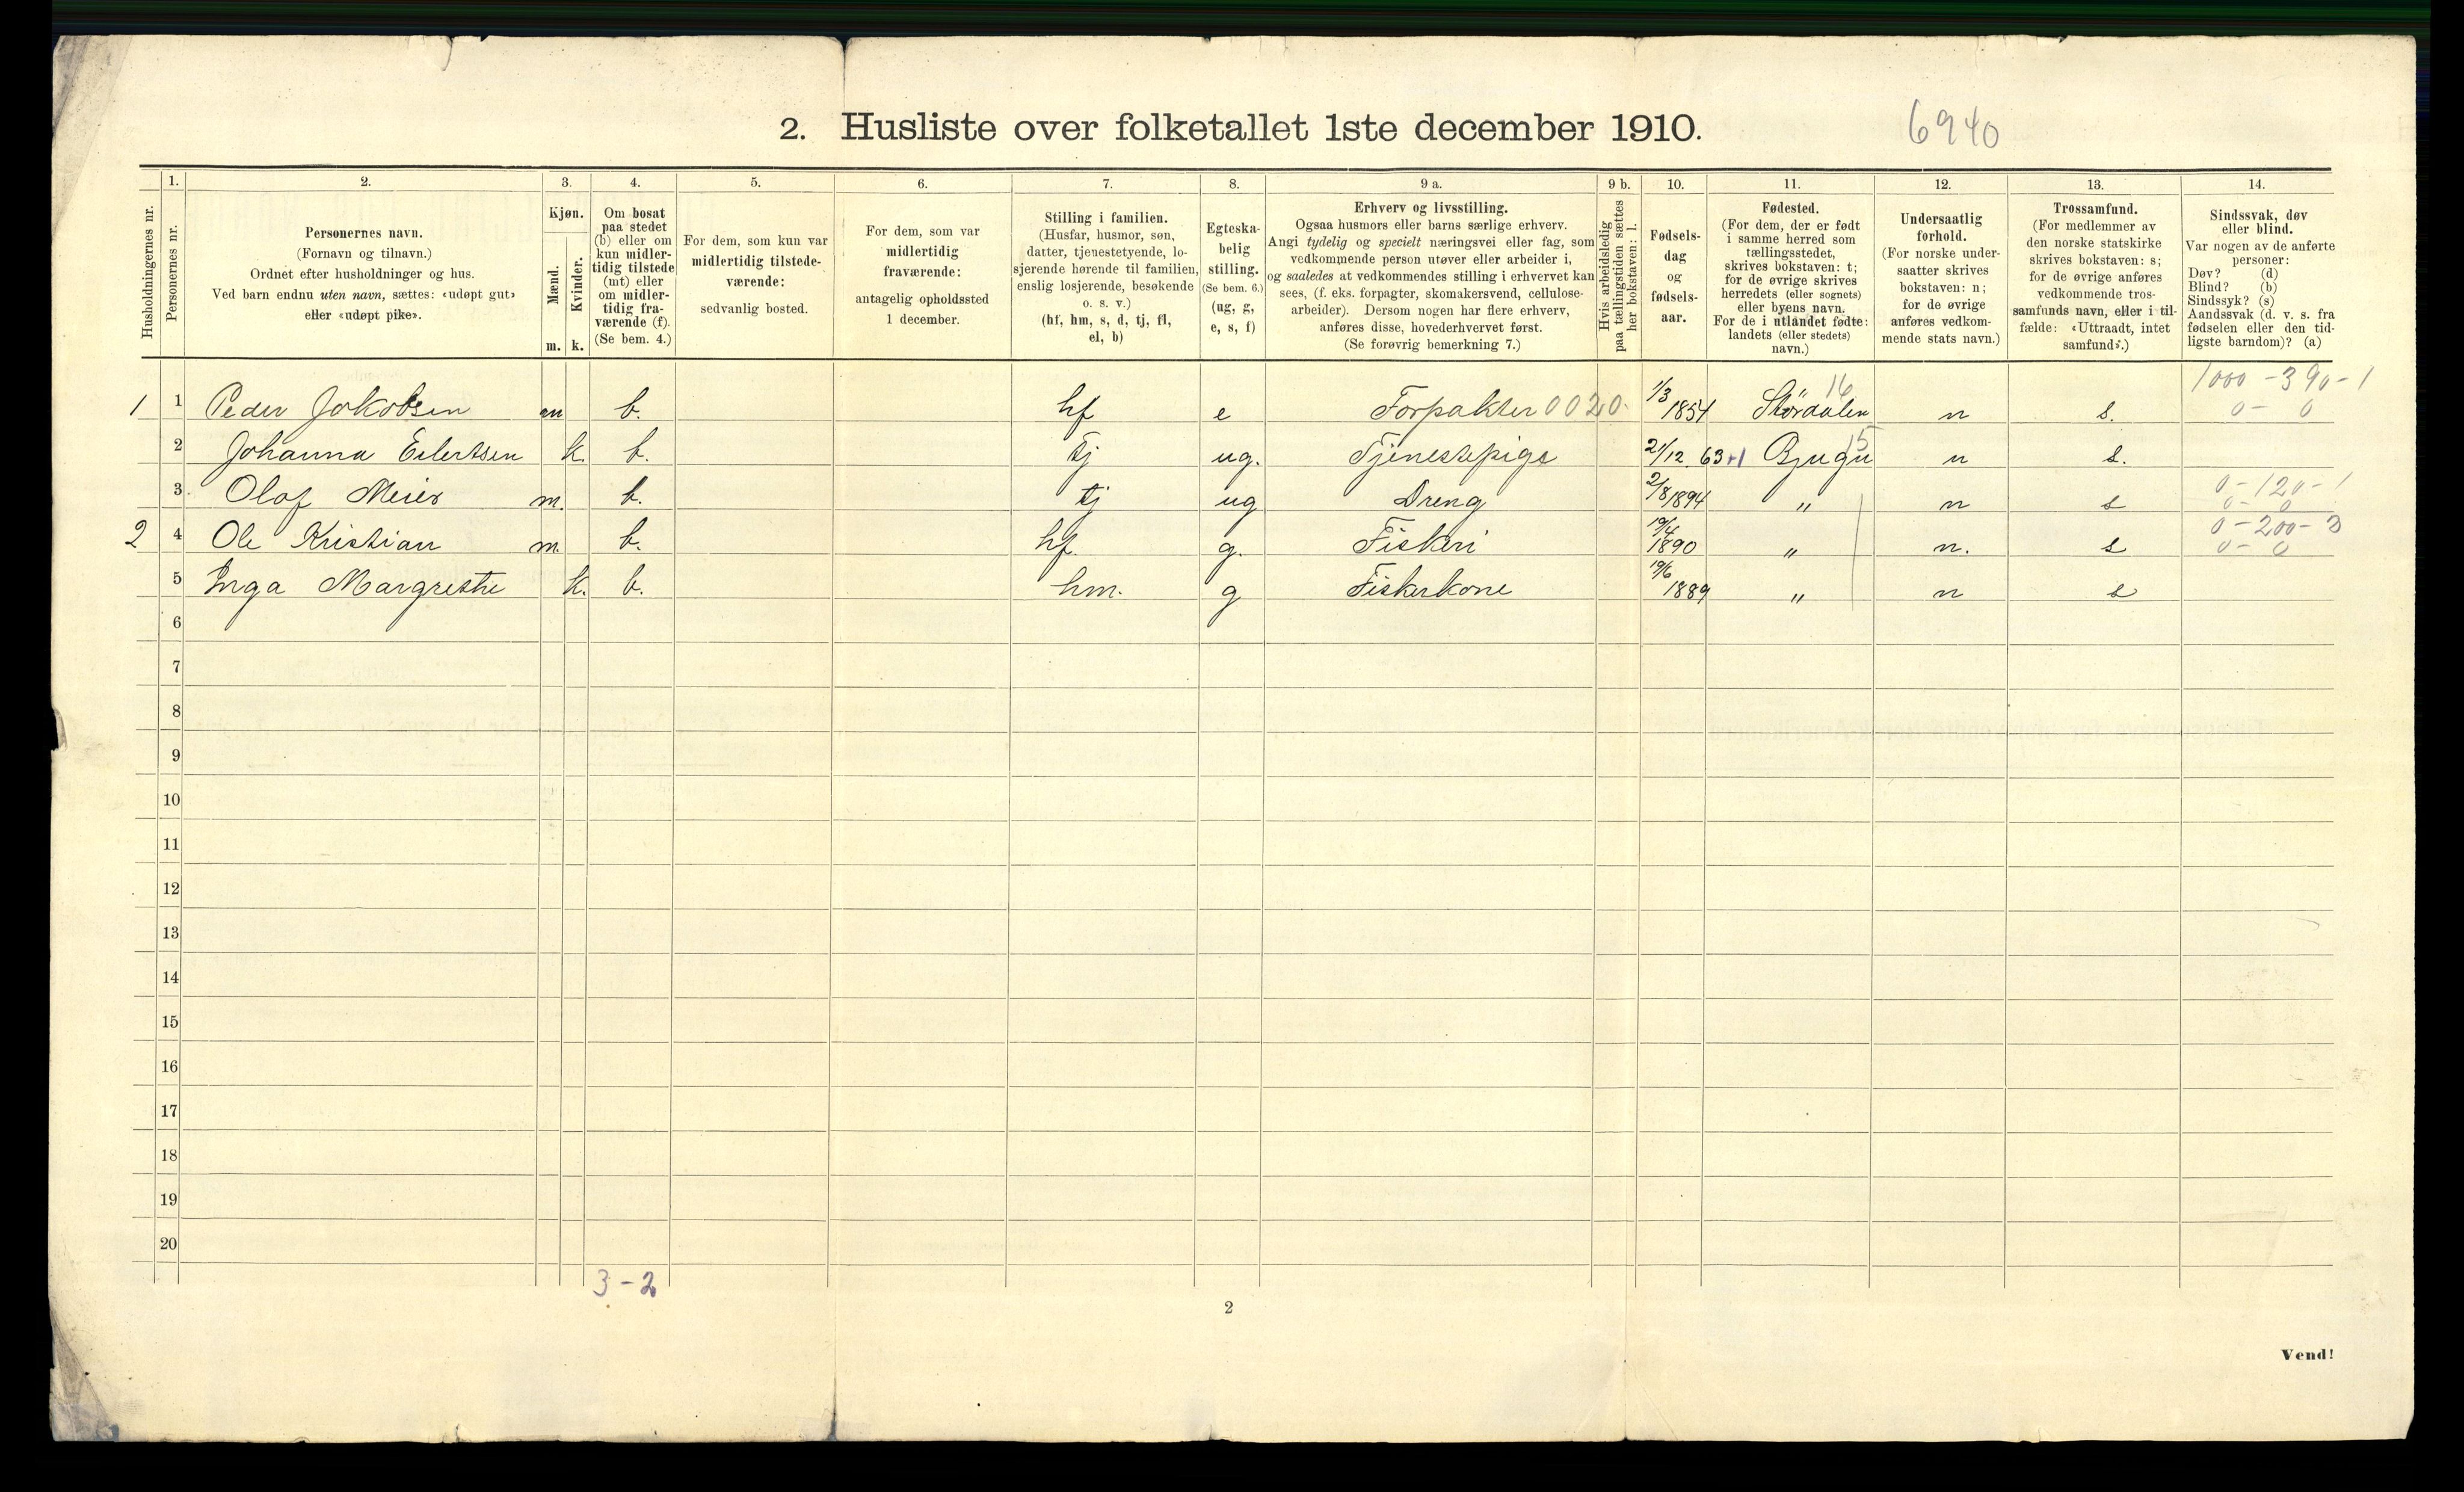 2. Husliste over folketallet 1ste december 1910.
6940
Husholdningernes nr.
1.
Personernes nr.
2.
Personernes navn.
(Fornavn og tilnavn.)
Ordnet efter husholdninger og hus.
Ved barn endnu uten navn, sættes: «udøpt gut»
eller «udøpt pike».
3.
Kjøn.
Mænd.
Kvinder.
m. k.
4.
Om bosat
paa stedet
(b) eller om
kun midler-
tidig tilstede
(mt) eller
om midler-
tidig fra-
værende (f).
(Se bem. 4.)
5.
For dem, som kun var
midlertidig tilstede-
værende:
sedvanlig bosted.
6.
For dem, som var
midlertidig
fraværende:
antagelig opholdssted
1 december.
7.
Stilling i familien.
(Husfar, husmor, søn,
datter, tjenestetyende, lo-
sjerende hørende til familien,
enslig losjerende, besøkende
o. s. v.)
(hf, hm, s, d, tj, fl,
el, b)
8.
Egteska-
belig
stilling.
(Se bem. 6.)
(ug, g,
e, s, f)
9 a.
Erhverv og livsstilling.
Ogsaa husmors eller barns særlige erhverv.
Angi tydelig og specielt næringsvei eller fag, som
vedkommende person utøver eller arbeider i,
og saaledes at vedkommendes stilling i erhvervet kan
sees, (f. eks. forpagter, skomakersvend, cellulose-
arbeider). Dersom nogen har flere erhverv,
anføres disse, hovederhvervet først.
(Se forøvrig bemerkning 7.)
9 b.
Hvis arbeidsledig
paa tællingstiden sættes
her bokstaven: l.
10.
Fødsels-
dag
og
fødsels-
aar.
11.
Fødested.
(For dem, der er født
i samme herred som
tællingsstedet,
skrives bokstaven: t;
for de øvrige skrives
herredets (eller sognets)
eller byens navn.
For de i utlandet fødte:
landets (eller stedets)
navn.)
12.
Undersaatlig
forhold.
(For norske under-
saatter skrives
bokstaven: n;
for de øvrige
anføres vedkom-
mende stats navn.)
13.
Trossamfund.
(For medlemmer av
den norske statskirke
skrives bokstaven: s;
for de øvrige anføres
vedkommende tros-
samfunds navn, eller i til-
fælde: «Uttraadt, intet
samfund».)
14.
Sindssvak, døv
eller blind.
Var nogen av de anførte
personer:
Døv? (d)
Blind? (b)
Sindssyk? (s)
Aandssvak (d. v. s. fra
fødselen eller den tid-
ligste barndom)? (a)
16 1000 - 390 - 1
1 1 Peder Jakobsen m b. hf e Forpakter 0020. 1/3 1854 Størdalen n s. 0 - 0
15
2 Johanna Eilertsen k. b. tj ug. Tjenestepige 21/12 63 Bjugn n s.
0 - 120 - 1
3 Olaf Meier m. b. tj ug Dreng 2/8 1894 " n s 0 - 0
0 - 200 - 3
2 4 Ole Kristian m b. hf. g. Fiskeri 19/4 1890 " n. s 0 - 0
5 Inga Margrethe k. b. hm. g Fiskerkone 19/6 1889 " n s
6
7
8
9
10
11
12
13
14
15
16
17
18
19
20
3 - 2
2
Vend!